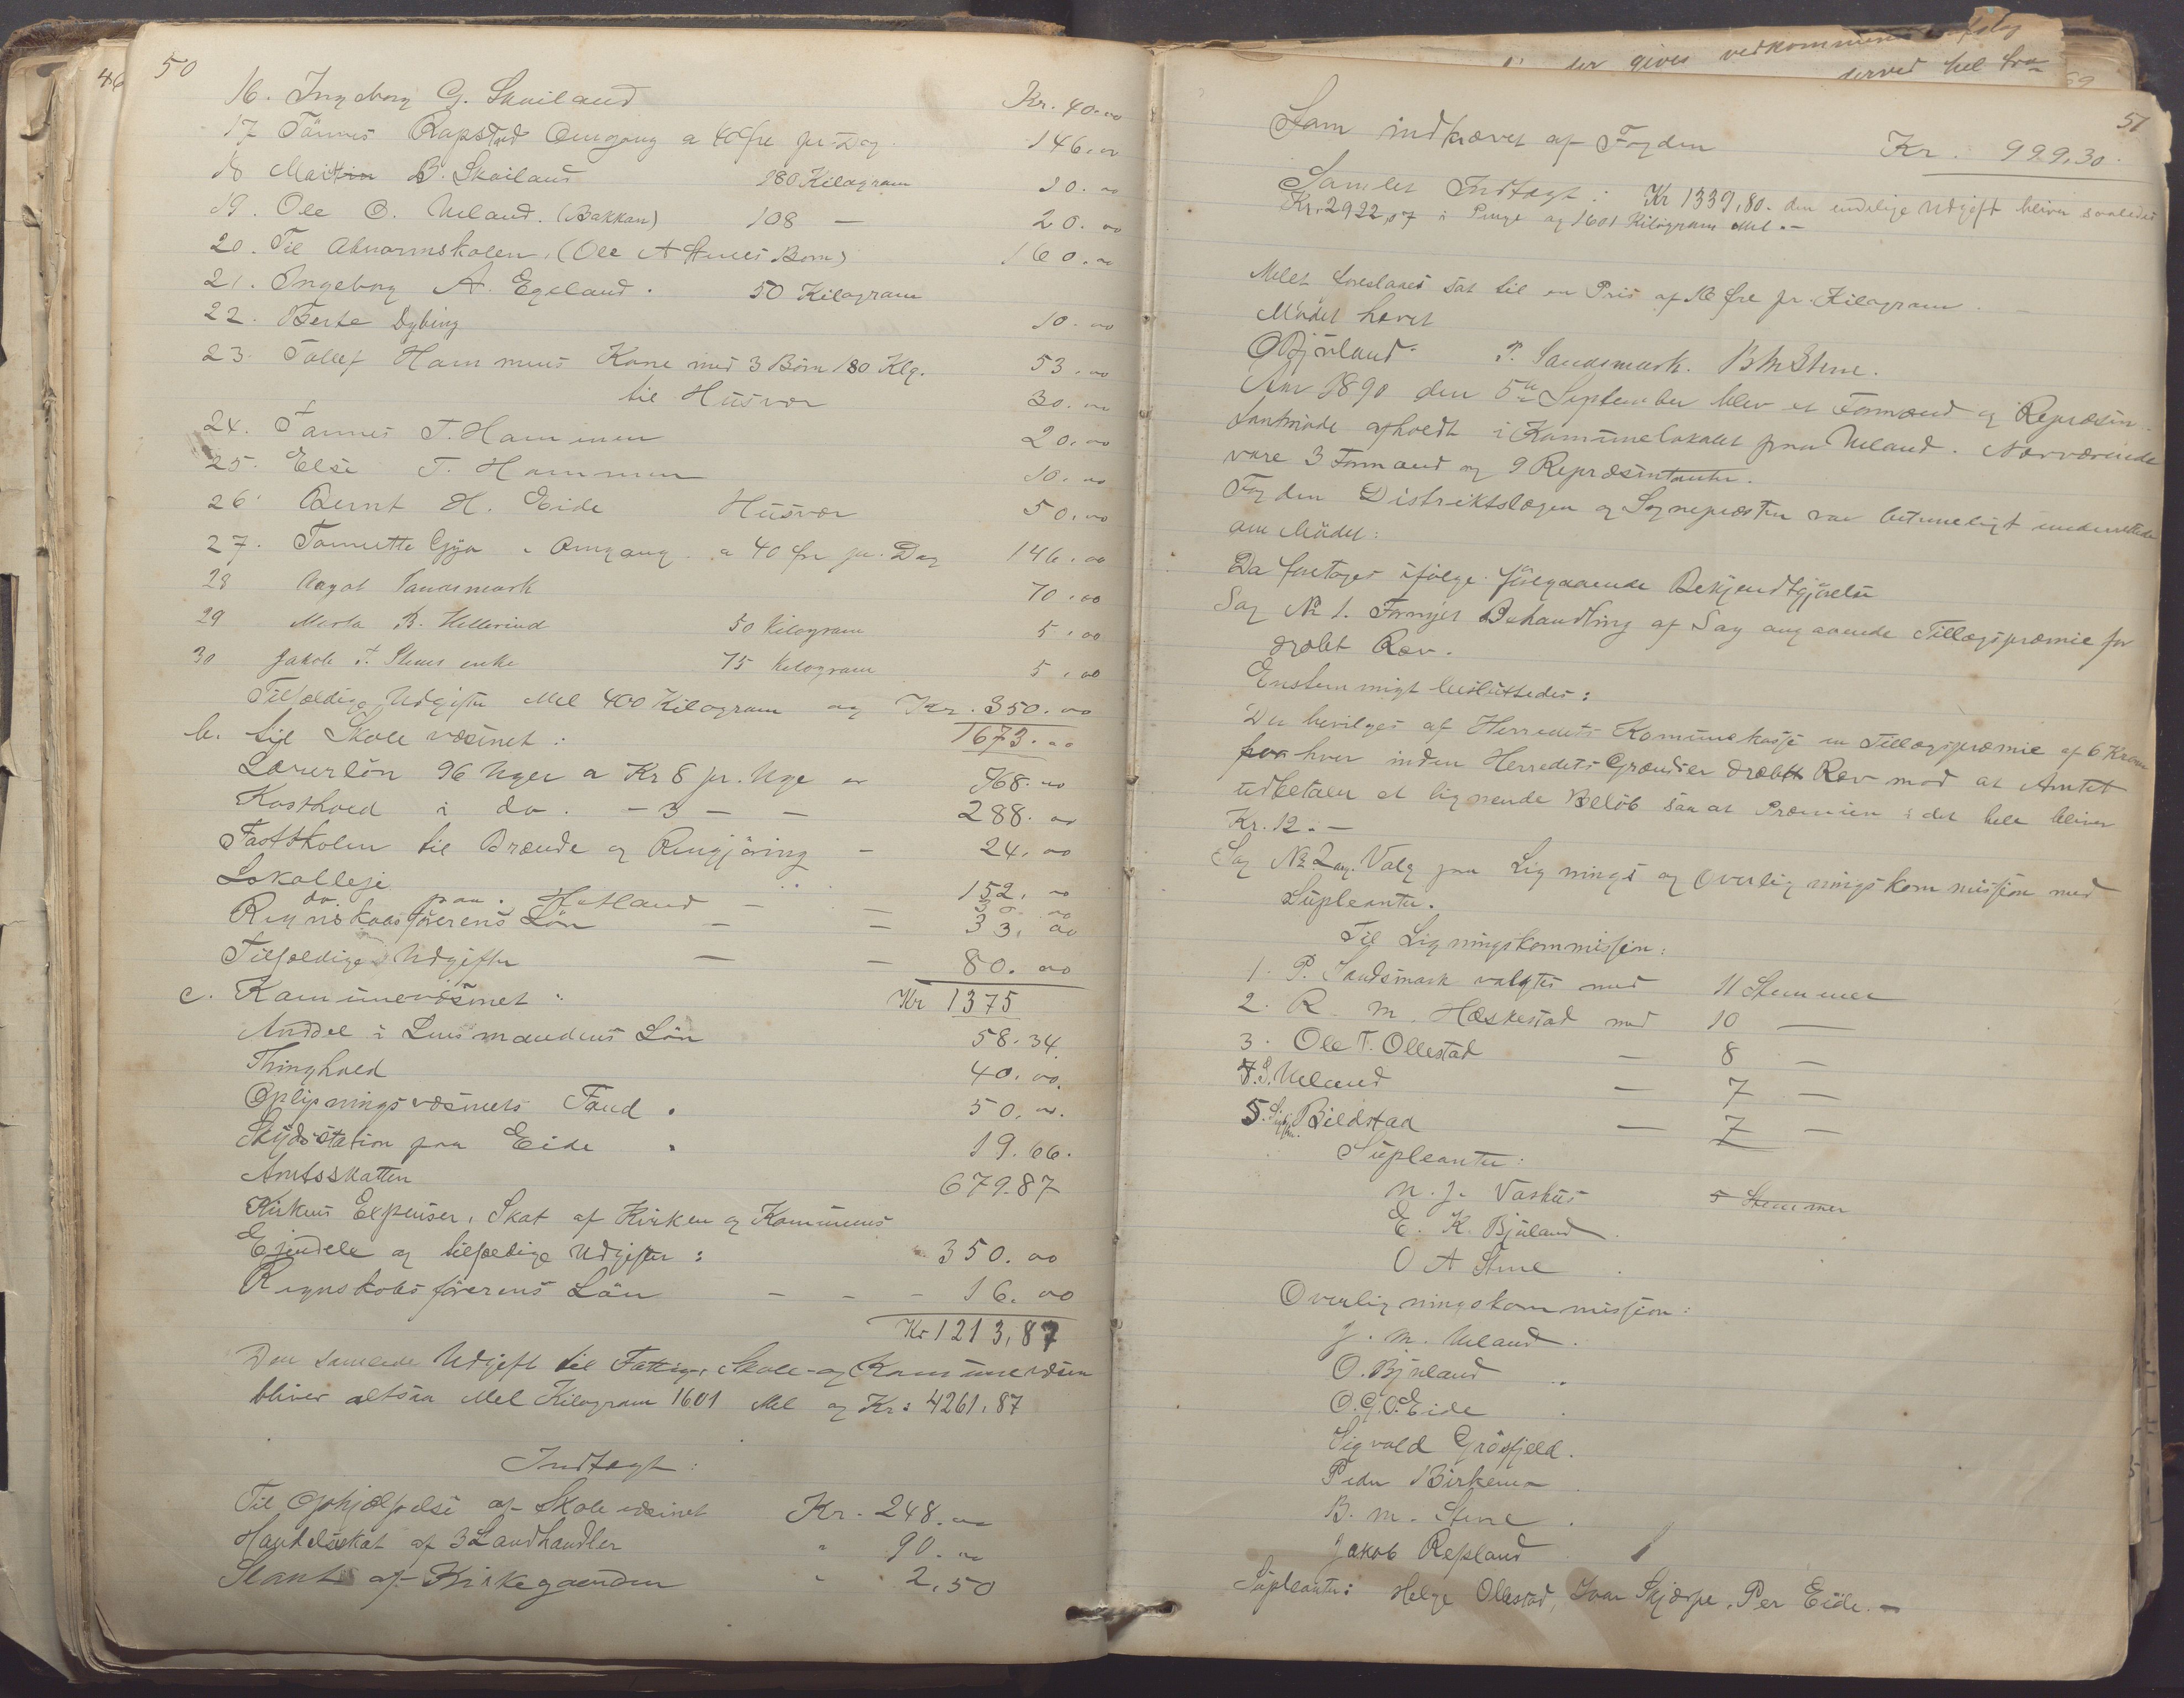 50
46
16. Ingeborg G. Skailand Kr. 40.00
17 Tönnes Rapstad Omgang a 40 Øre pr Dag. 146.00
18 Martin B. Skailand 180 Kilogram 10.00
19. Ole O. Ueland. (Bakkan) 108 — 20.00
20. Til Abnormskolen, (Ole A Stenes Born) 160.00
21. Ingeborg A. Egeland. 50 Kilogram
22. Berte Dybing 10.00
23. Tollef Hammens Kone med 3 Börn 180 Klg. 53.00
til Husvær 30.00
24. Tönnes T. Hammen 20.00
25. Else T. Hammen 10.00
26. Bernt H. Eide Husvær 50.00
27. Tomette Gya Omgang a 40 Øre pr. Dag 146.00
28 Aagot Sandsmark 70.00
29 Marta B. Hellerind 50 Kilogram 5.00
30 Jakob T. Stenes enke 75 Kilogram 5.00
Tilfældige Udgifter Mel 400 Kilogram og Kr. 350.00
1673.00
b. til Skolevæsenet:
Lærerlön 96 Uger a Kr 8 pr. Uge er 768.00
Kosthold i do. - 3 - - 288.00
Fastskolen til Brænde og Rengjöring - 24.00
Lokalleje 152.00
do. paa Hetland - - 30.00
Regnskabsförerens Lön - - 33.00
Tilfældige Udgifter - - 80.00
c. Kommunevæsenet: Kr 1375
Anddel i Lensmandens Lön 58.34
Thinghold 40.00.
Oplysningsvæsenets Fond. 50.00.
Skydsstation paa Eide 19.66.
Amtsskatten 679.87
Kirkens Expenser, Skat af Kirken og Kommunens
Ejendele og tilfældige Udgifter: 350.00
Regnskabsförerens Lön - - - 16.00
Kr 1213,87
Den samlede Udgift til Fattig-, Skole- og Kommunevæsen
bliver altsaa Mel Kilogram 1601 Mel og Kr: 4261,87
Indtægt:
Til Ophjælpelse af Skolevæsenet Kr. 248.00
Handelsskat af 3 Landhandler " 90.00
Leant af Kirkegaarden " 2,50
der gives vedkommende
51
Som indkrævet af Fogden Kr. 999,30.
Samlet Indtægt: Kr 1339,80. den endelige Udgift bliver saaledes
Kr. 2922,07 i Penge og 1601 Kilogram Mel. -
Melet foreslaaes sat til en Pris af 16 Øre pr. Kilogram.
Mödet hævet
O Bjuland. P. Sandsmark. B M Stene.
Aar 1890 den 5te September blev et Formænd og Repræsen-
tantmöde afholdt i Kommunelokalet paa Ueland. Nærværende
vare 3 Formænd og 9 Repræsentanter.
Fogden Distriktslægen og Sognepresten var betimeligt underrettede
om Mödet:
Da foretoges ifölge forgaaende Bekjendtgjörelse
Sag No 1. Fornyet Behandling af Sag angaaende Tillægspræmie for
dræbt Ræv.
Enstemmigt besluttedes:
Der bevilges af Herredets Kommunekasse en Tillægspræmie af 6 Kroner
for hver inden Herredets Grændser dræbt Ræv mod at Amtet
udbetaler et lignende Belöb saa at Præmien i det hele bliver
Kr. 12. -
Sag No 2 ang. Valg paa Lignings og overligningskommission med
Supleanter.
Til Ligningskommission:
1. P. Sandsmark valgtes med 11 Stemmer
2. R. M. Hæskestad med 10 —
3. Ole T. Ollestad — 8 —
4. S. Ueland — 7 —
5. Bilstad — 7 —
Supleanter:
N. J. Vashus 5 Stemmer
E. K. Bjuland.
O A Stene
Overligningskommission:
J. M. Ueland.
O. Bjuland
O. G. O. Eide
Sigvald Grösfjeld.
Peder Birkemo
B. M. Stene.
Jakob Refsland
Supleanter: Helge Ollestad, Ivar Skjærpe, Per Eide. -